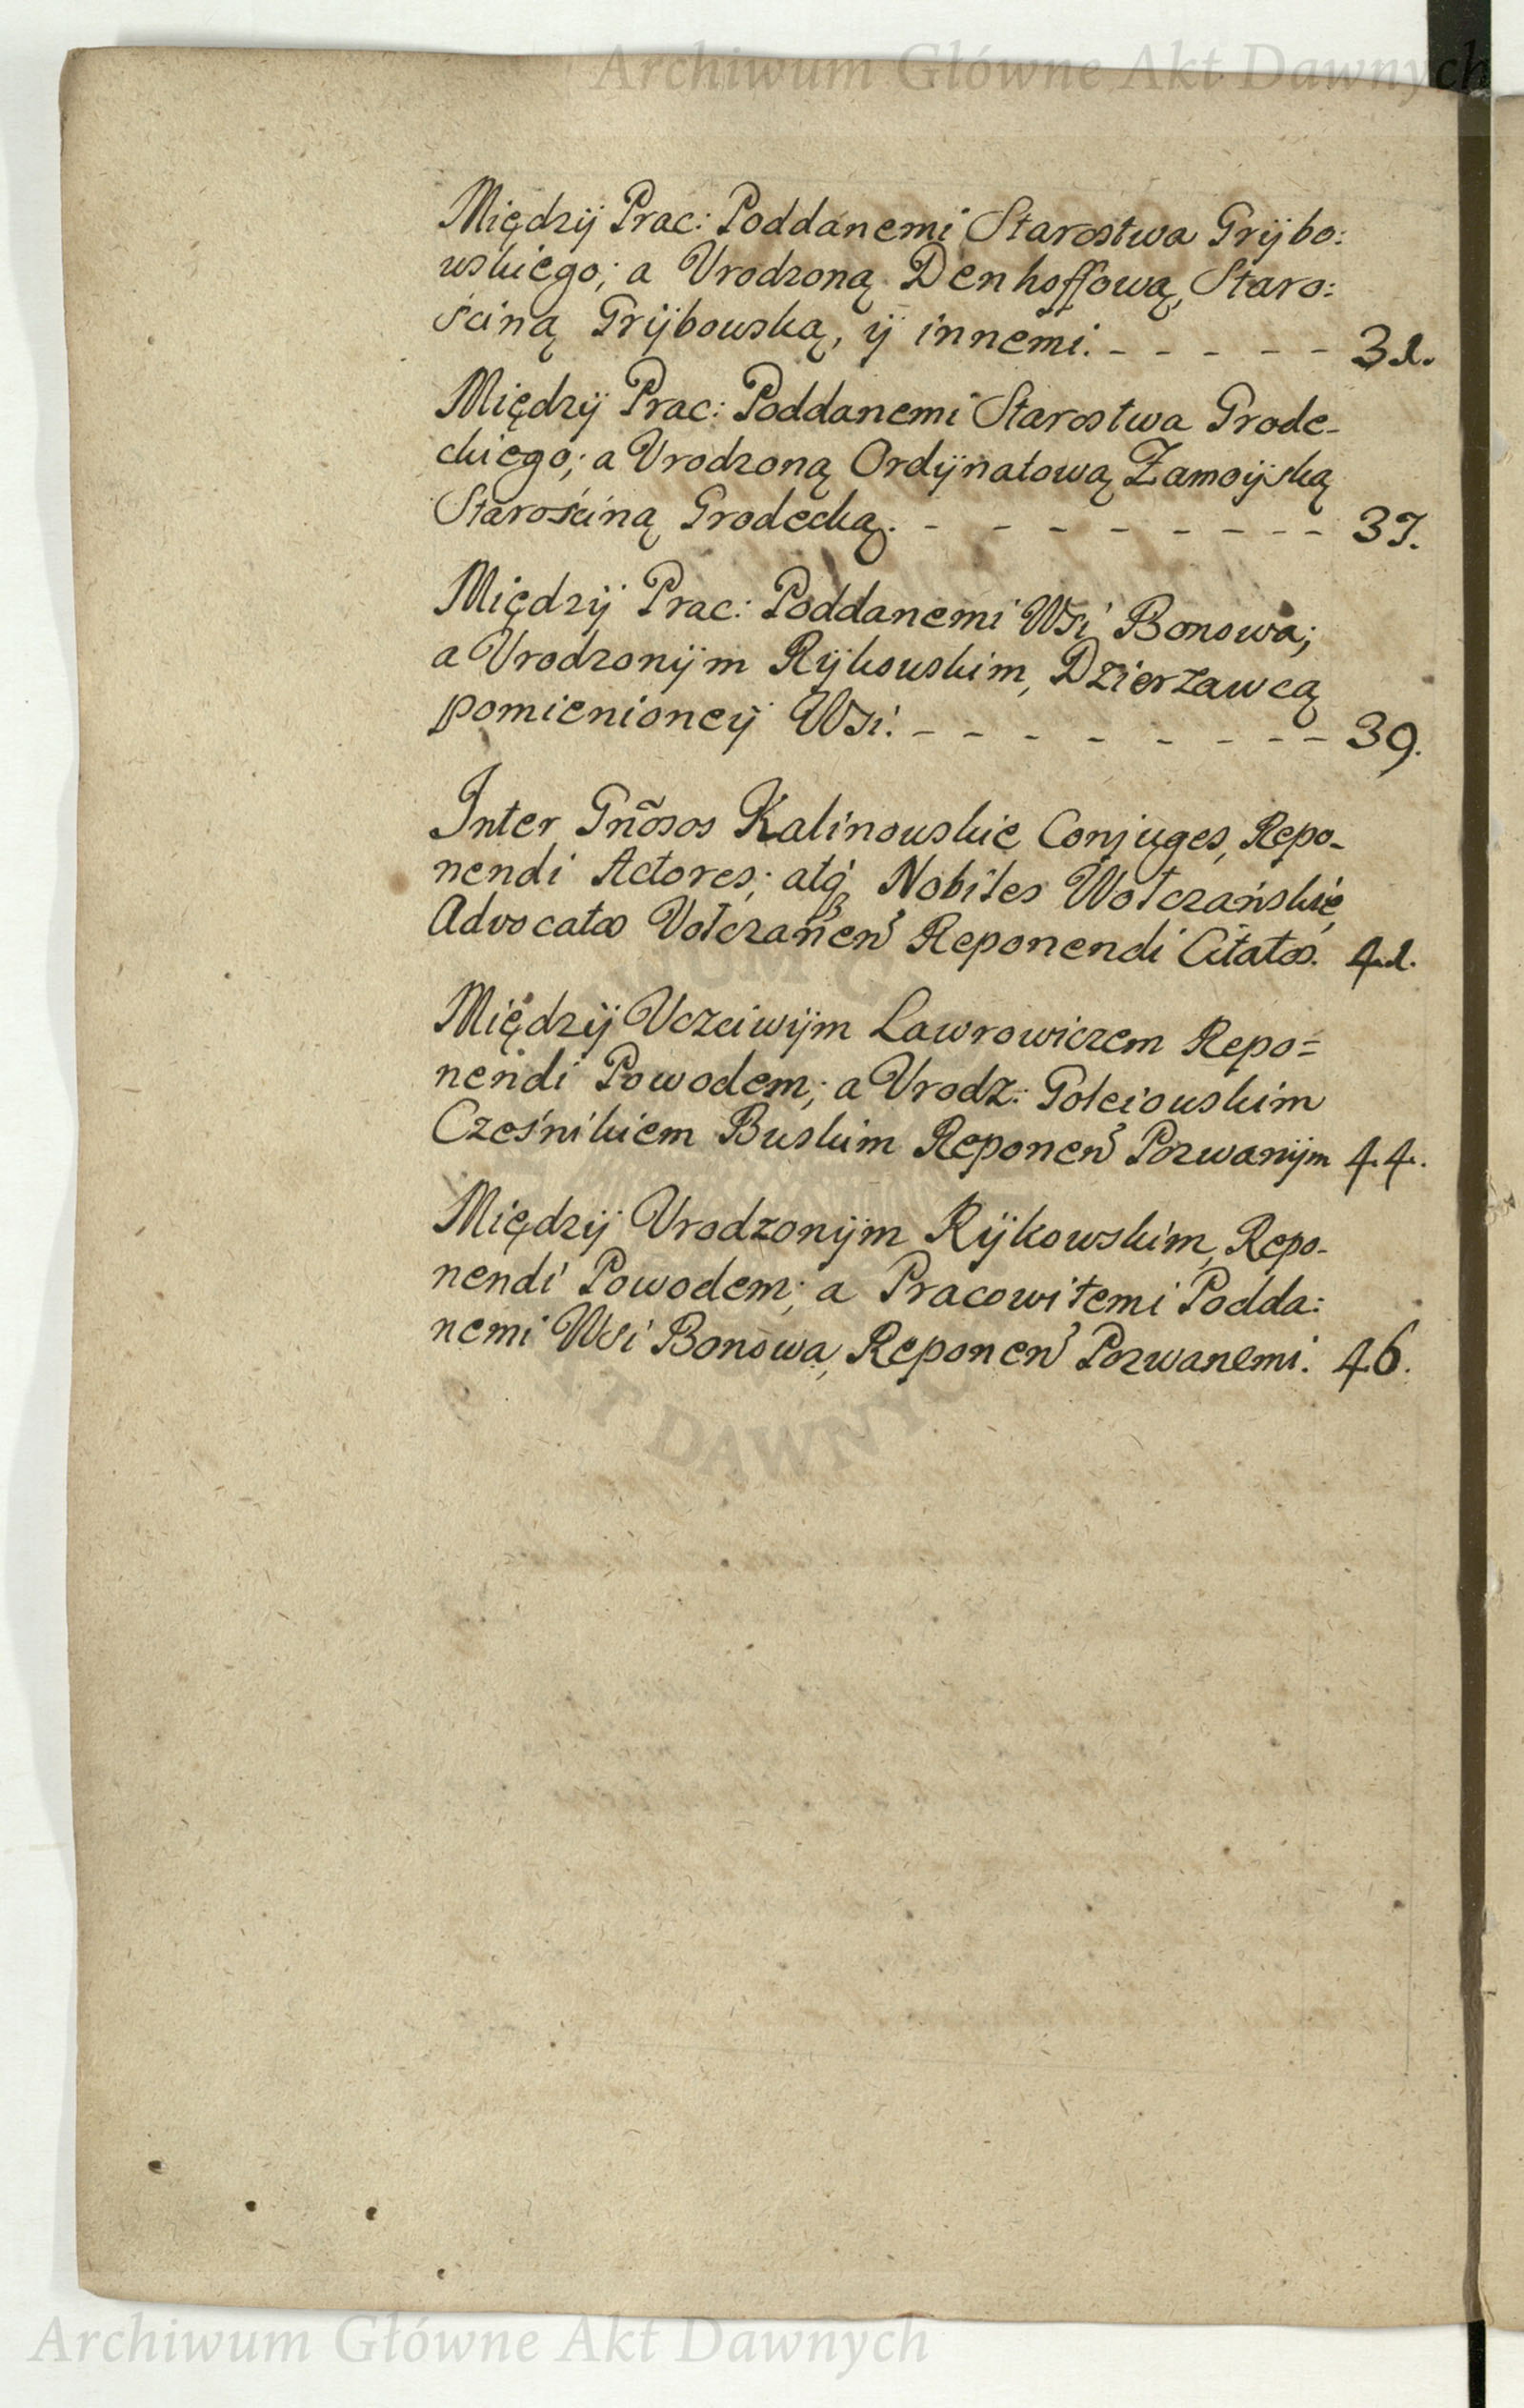 Archiwum Główne Akt Dawnych
Międzÿ Prac: Poddanemi Starostwa Grÿbo:
wskiego; a Vrodzoną Denhoffową, Staro:
ściną Grÿbowską, ÿ innemi. - - - - - 31.
Międzÿ Prac: Poddanemi Starostwa Grode-
ckiego; a Vrodzoną Ordÿnatową Zamoÿską
Starościną Grodecką. - - - - - - - - 37.
Międzÿ Prac: Poddanemi Wsi Bonowa;
a Vrodzonÿm Rÿkowskim, Dzierzawcą
pomienioneÿ Wsi. - - - - - - - - 39.
Inter Gnõsos Kalinowskie Conjuges, Repo-
nendi Actores; atq Nobiles Wołczańskie,
Advocatos Vołczanen Reponendi Citatos. 41.
Międzÿ Vczciwÿm Lawrowiczem Repo=
nendi Powodem; a Vrodz: Gołciowskim
Cześnikiem Buskim Reponen Pozwanÿm 44.
Międzÿ Vrodzonÿm Rÿkowskim, Repo-
nendi Powodem; a Pracowitemi Podda:
nemi Wsi Bonowa, Reponen Pozwanemi. 46.
AKT DAWNYCH
Archiwum Główne Akt Dawnych